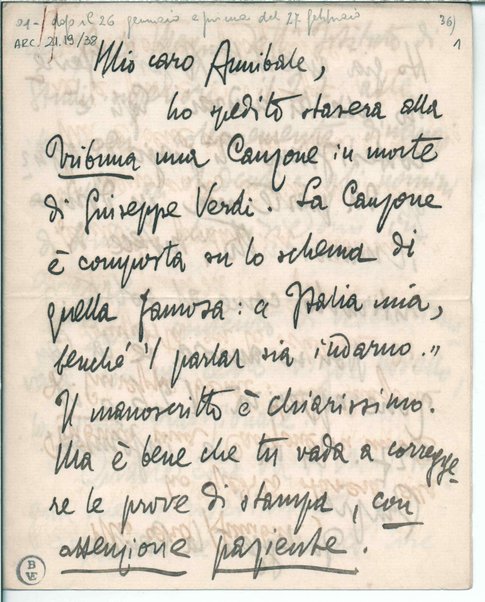 21- dopo il 26 gennaio e prima del 27 febbraio
36)
ARC. 21.19/38
1
Mio caro Annibale,
ho spedito stasera alla
Tribuna una Canzone in morte
di Giuseppe Verdi. La Canzone
è composta su lo schema di
quella famosa: « Italia mia,
benché 'l parlar sia indarno. »
Il manoscritto è chiarissimo.
Ma è bene che tu vada a corregge-
re le prove di stampa, con
attenzione paziente.
B
VE